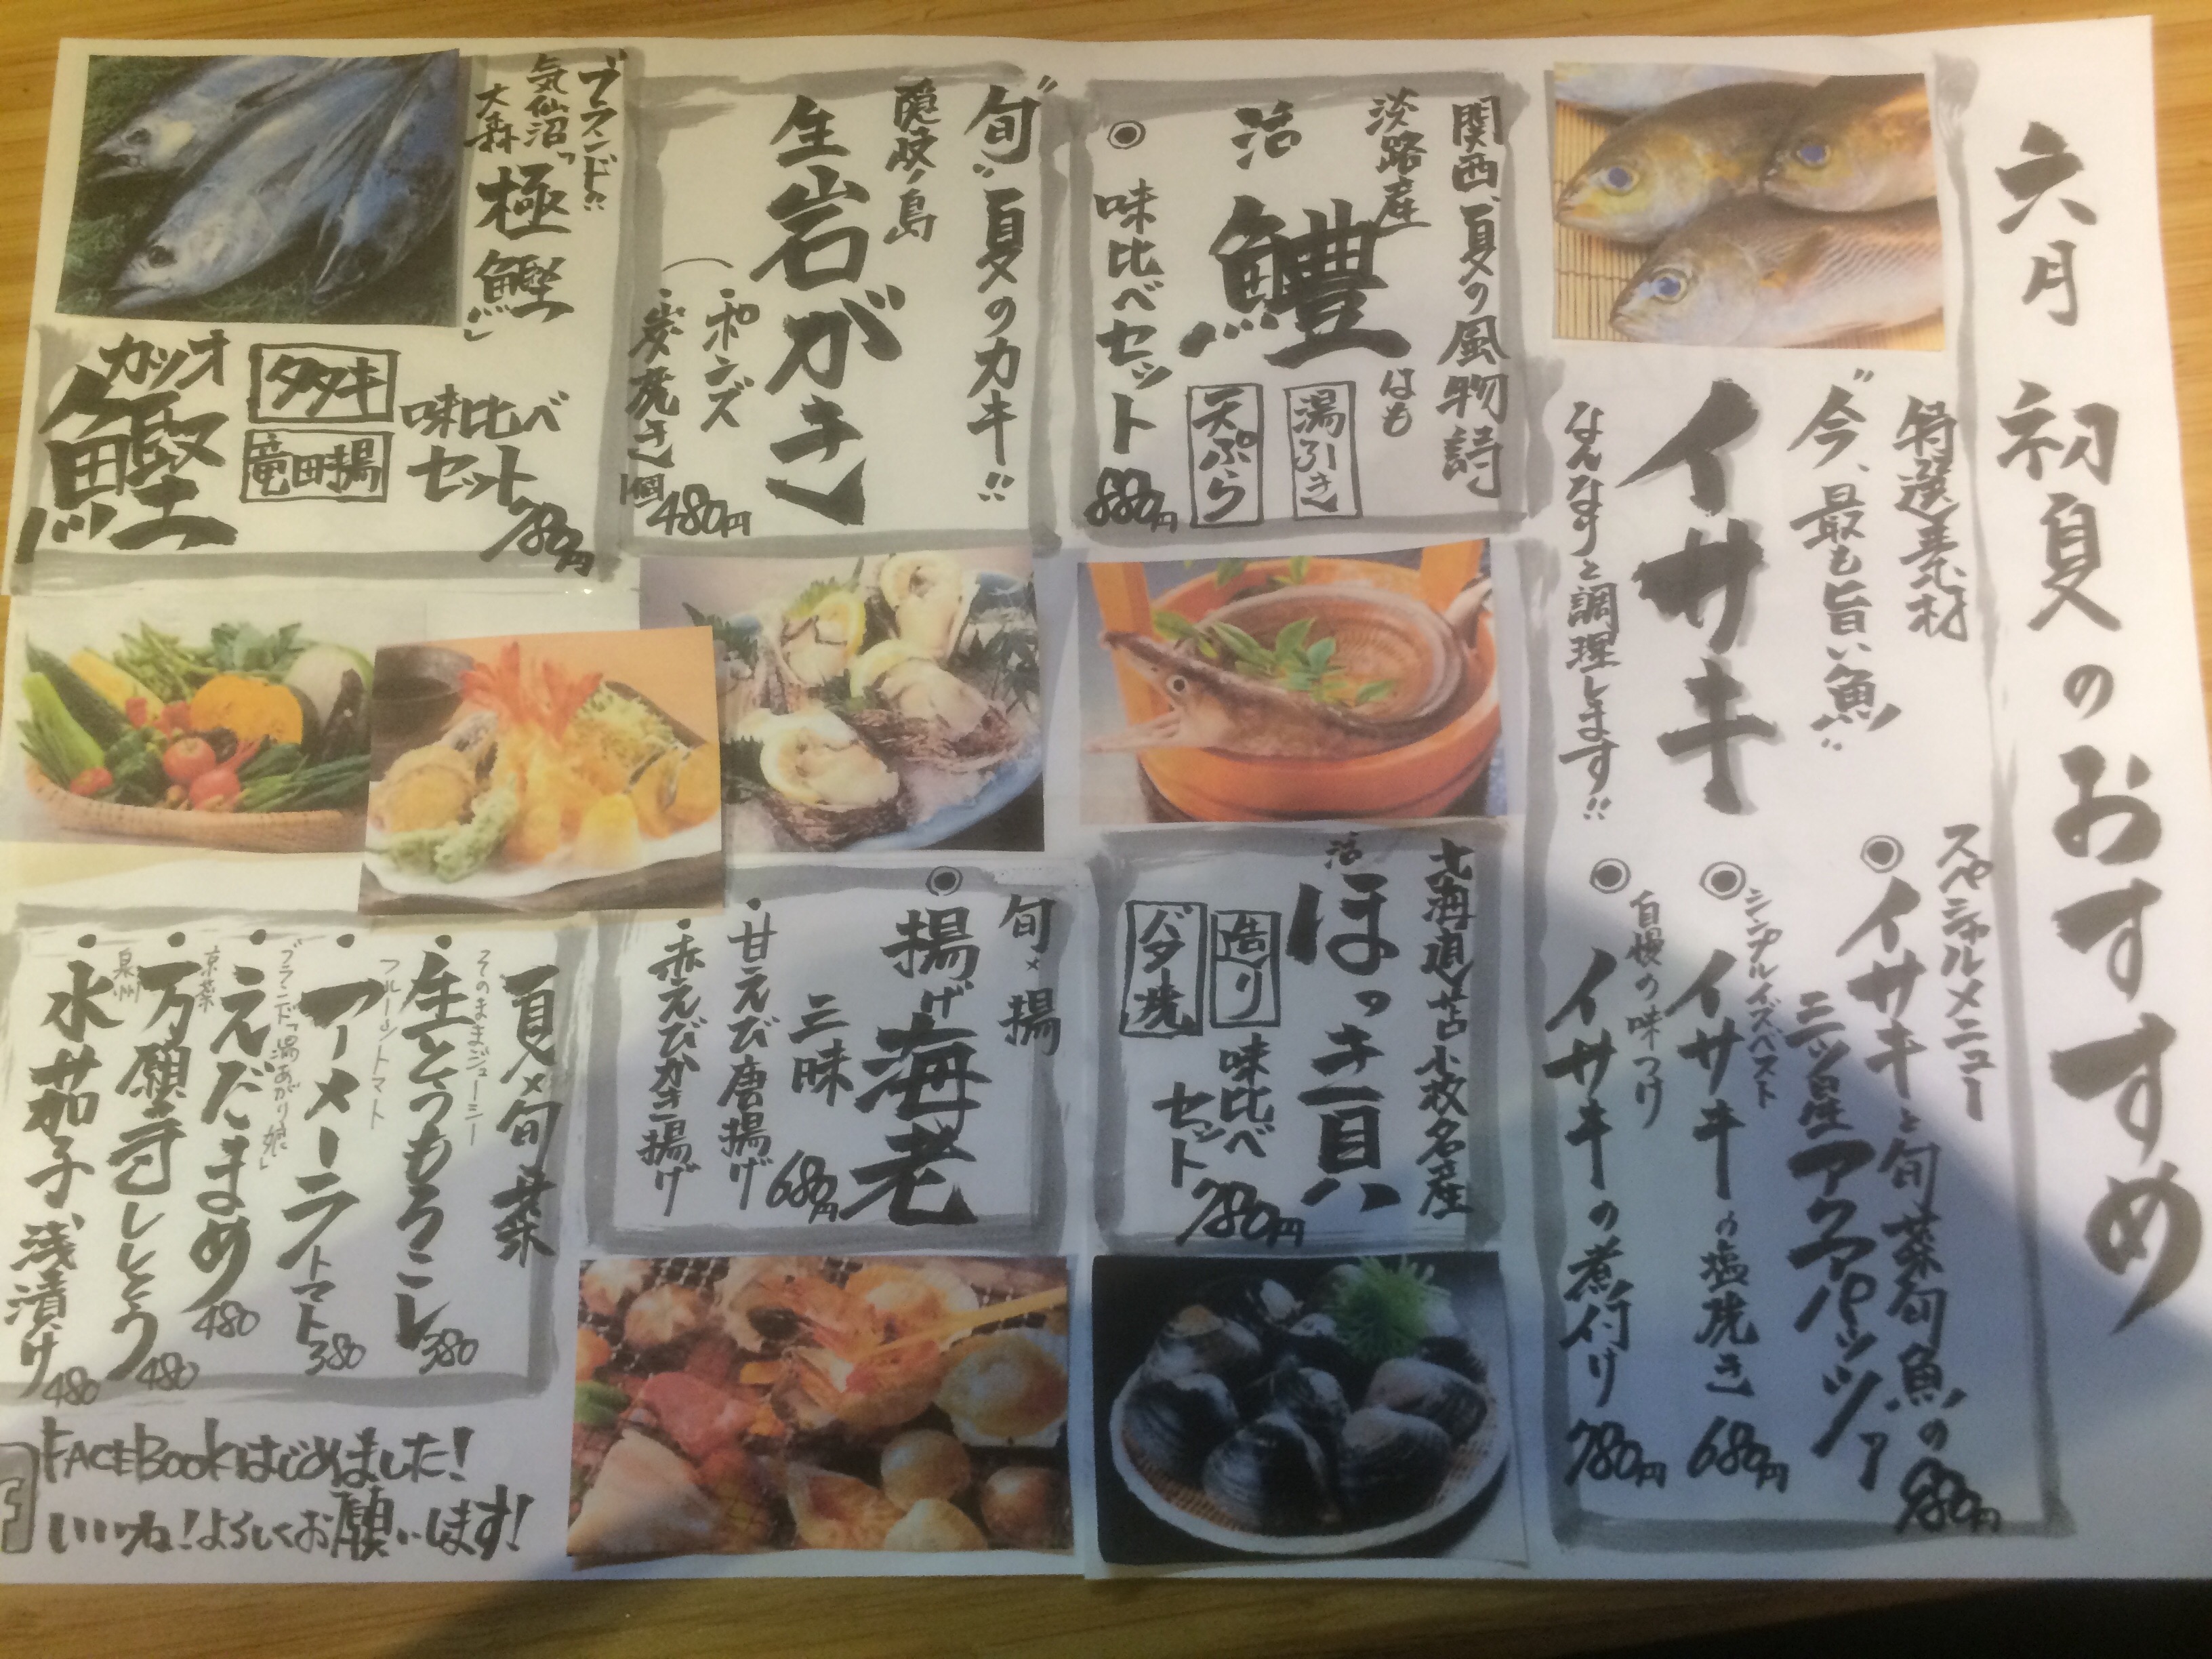 六月 初夏のおすすめ
特選素材
"今、最も旨い魚"
イサキ
なんなりと調理します!!
スペシャルメニュー
◎イサキと旬菜旬魚の
三ッ星アクアパッツァ
980円
シンプルイズベスト
◎イサキの塩焼き 680円
自慢の味つけ
◎イサキの煮付け 780円
関西、夏の風物詩
淡路産
活 鱧 はも
湯引き
天ぷら
◎味比べセット 880円
"旬" 夏のカキ!!
隠岐ノ島
生岩がき
・ポンズ
・炭焼き 1個 480円
ブランド!!
気仙沼
大森
"極鰹"
カツオ
鰹
タタキ
竜田揚
味比べ
セット
780円
北海道苫小牧名産
活 ほっき貝
造り
バタ焼
味比べ
セット
780円
旬×揚
◎揚げ海老
三昧 680円
・甘えび唐揚げ
・赤えびかき揚げ
夏×旬菜
そのままジューシー
・生とうもろこし 380
フルーツトマト
・アメーラトマト 380
ブランド「湯あがり娘」
・えだまめ 480
京菜
・万願寺ししとう 480
泉州
・水茄子浅漬け 480
FACEBookはじめました!
いいね!よろしくお願いします!